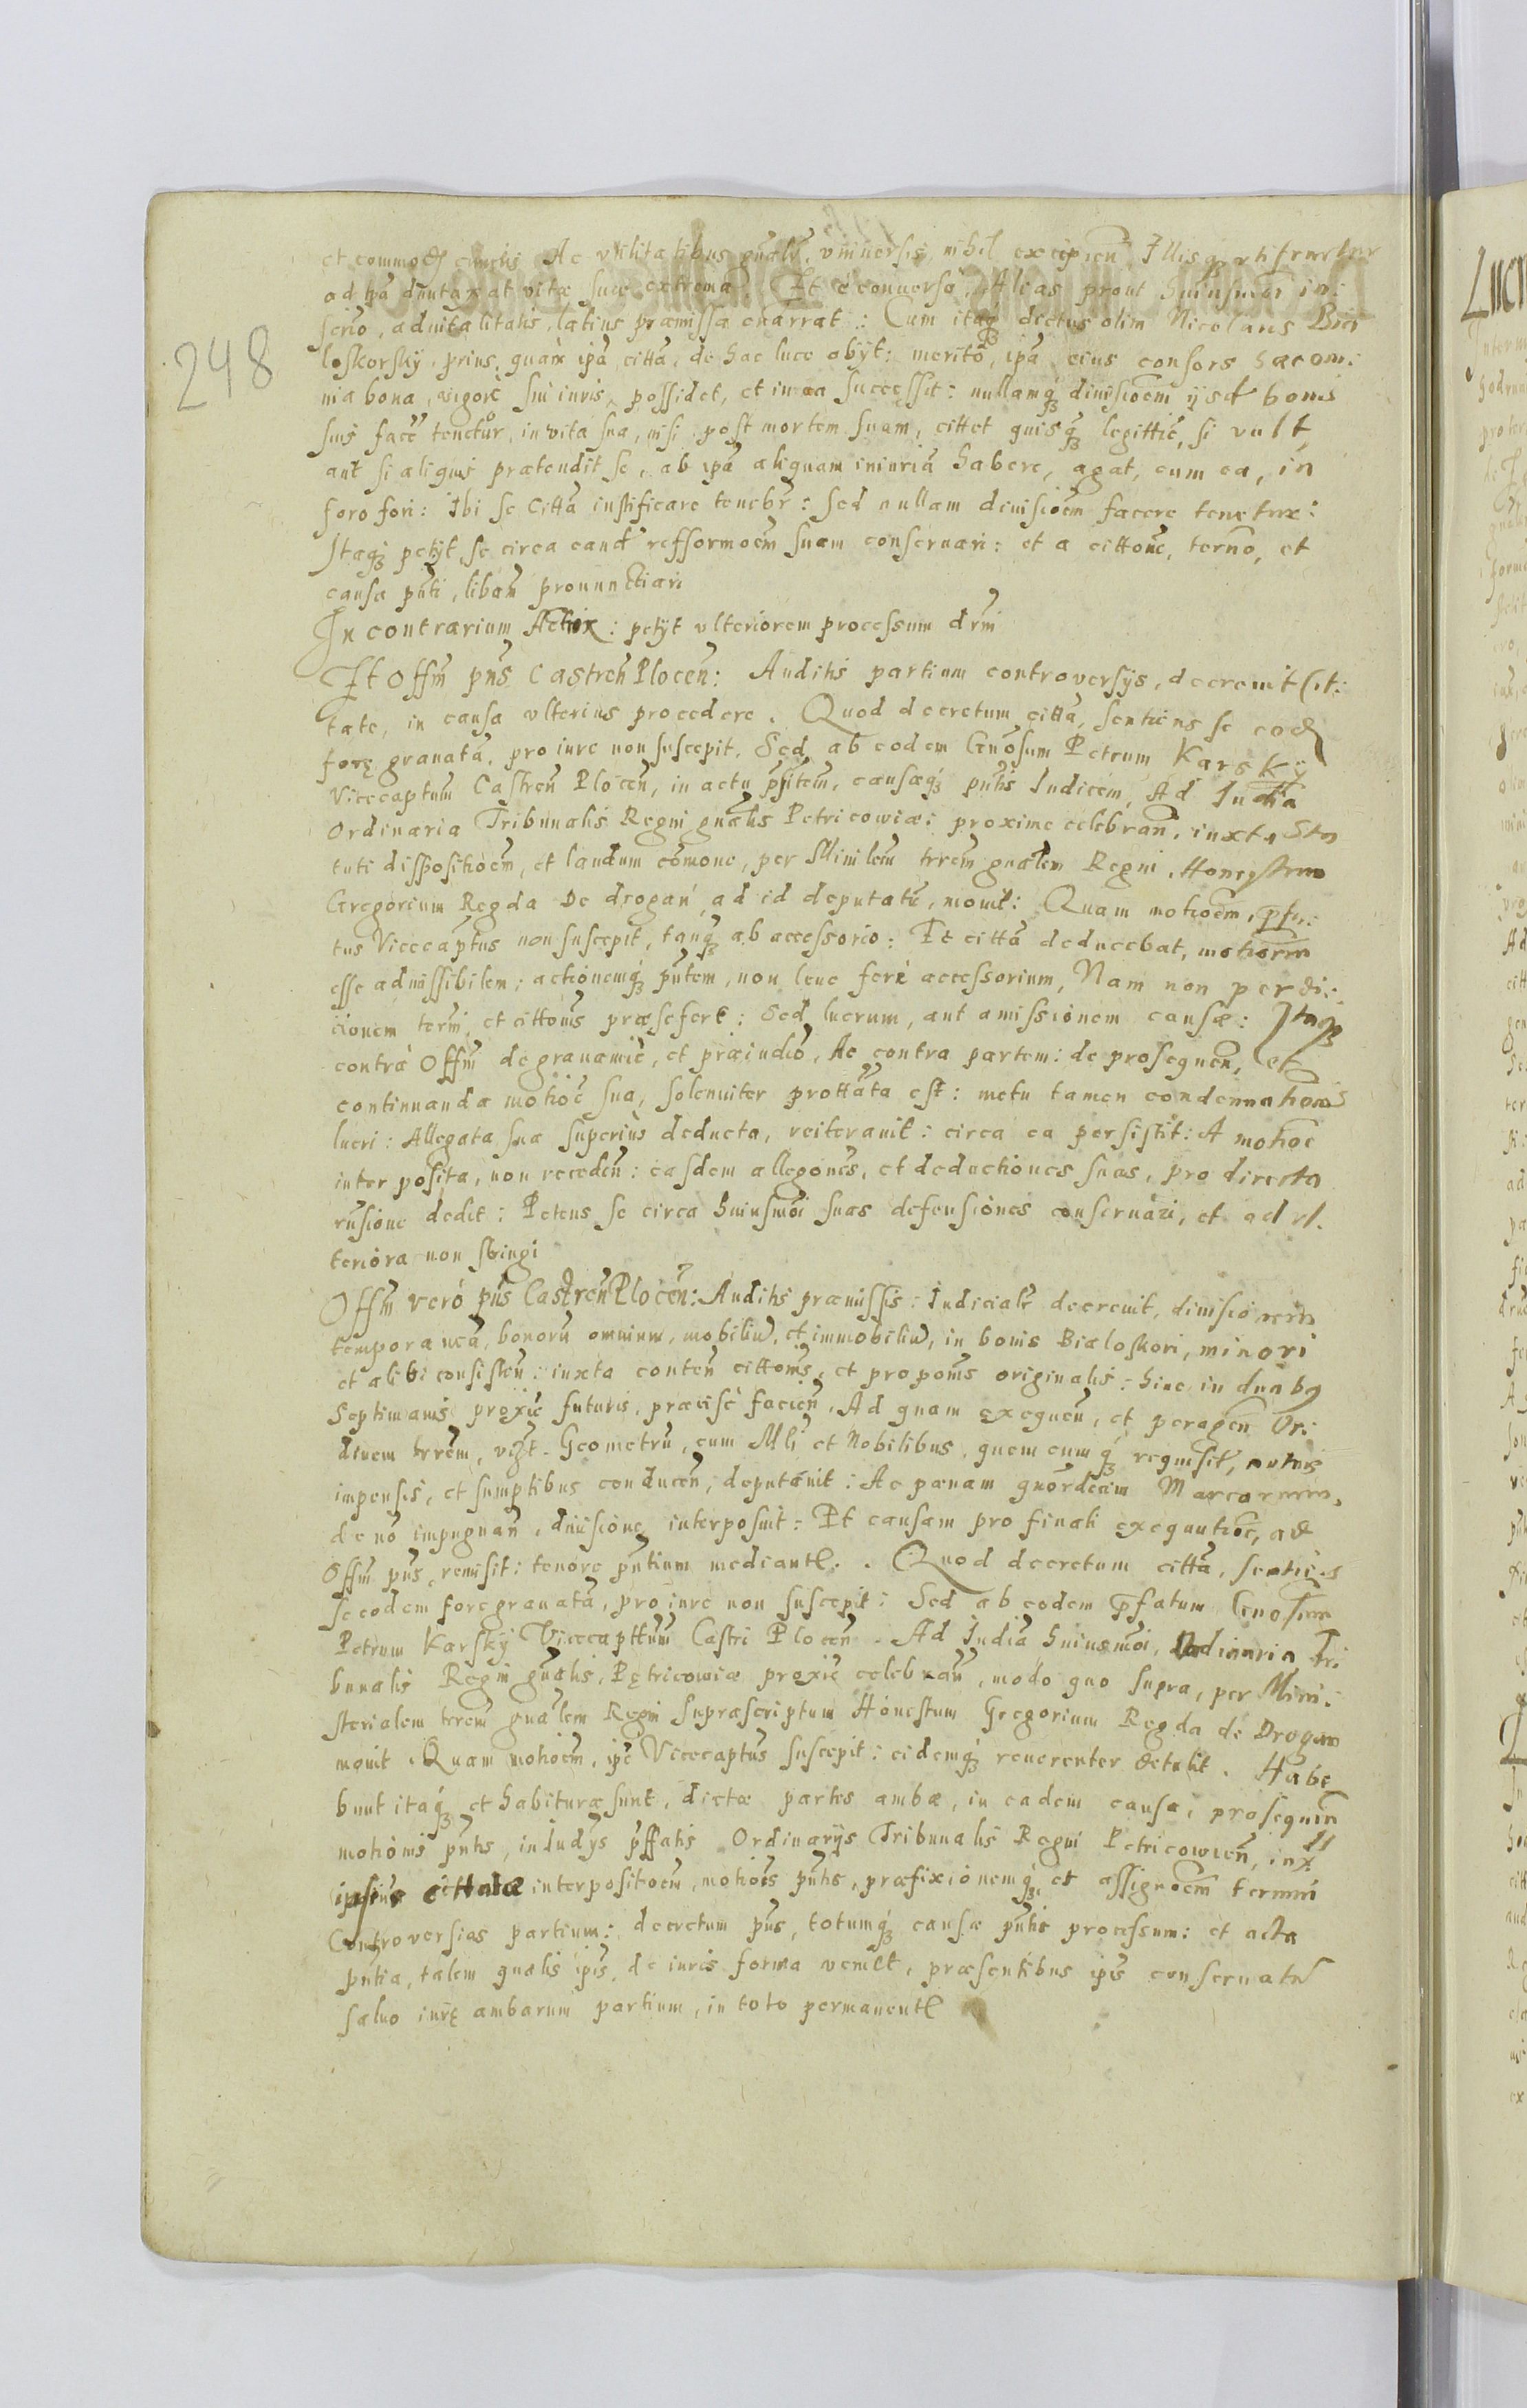 et commod cunctis Ac vtilitatibus gnalr. vniuersis, nihil excipien Illisq vtifructur
ad ipa duntaxat vitæ suæ extrema. Et è conuerso. Alias prout huiusmoi in:
scrio, aduitalitatis, latius præmissa enarrat: Cum itaq dictus olim Nicolaus Bia
loskorsky, prius, quam ipa citta, de hac luce obyt: merito, ipa eius consors hæc om:
nia bona, vigore sui iuris, possidet, et in ea successit: nullamq diuisioem ijsd bonis
suis face tenetur, in vita sua, nisi post mortem suam, cittet quisq legittie, si vult,
aut si aliquis prætendit se, ab ipa aliquam iniuria habere, agat, cum ea, in
foro fori: Ibi se citta iustificare tenebr: sed nullam diuisioem facere tenetur:
Itaq petyt, se circa eand refformoem suam conseruari: et a cittone, terno, et
causa pnti, libam pronunctiari
In contrarium Actrix: petyt vlteriorem processum drni
Et Offm pns Castren Plocen: Auditis partium controversys, decreuit Cit:
tatæ, in causa vlterius procedere. Quod decretum citta, sentiens se eod
fore grauata, pro iure non suscepit. Sed ab eodem Gnosum Petrum Karskij
Vicecaptum Castren Plocen, in actu pntem, causæq pntis Iudicem, Ad Iudia
Ordinaria Tribunalis Regni gnalis Petricowiæ: proxime celebran, iuxta Sta
tuti dispositioem, et laudum comone, per Minilem trrem gnalem Regni, Honestum
Gregorium Regda De drogan, ad id deputatu, mouit: Quam motioem, pfa:
tus Vicecaptus non suscepit, tanq ab accessorio: Et citta deducebat, motioem
esse admissibilem; actionemq pntem, non leue fere accessorium, Nam non perdi:
tionem termi, et cittonis præsefert: Sed lucrum, aut amissionem causæ: Itaq
contra Offm de grauamie, et præiudio, Ac contra partem: de prosequen, et
continuanda motioe sua, solenniter prottata est: metu tamen condemnationis
lucri: Allegata sua superius deducta, reiterauit: circa ea persistit: A motioe
interposita, non receden: easdem allegones, et deductiones suas, pro directa
rusione dedit: Petens se circa huiusmoi suas defensiones conseruari, et ad vl.
teriora non stringi
Offm vero pns Castren Plocen: Auditis præmissis: Iudicialr decreuit, diuisionem
temporanea, bonoru omnium, mobiliu, et immobiliu, in bonis Bialoskori, minori
et alibi consisten: iuxta conten cittonis, et proponis originalis: hinc in duabq
Septimanis proxie futuris, præcise facien, Ad quam exequen, et peragen Or:
dinem trrem, vizt. Geometru, cum Mli et Nobilibus, quem cumq requisit,
impensis, et sumptibus conducen, deputauit: Ac pænam quordecim Marcarum,
de no impugnan, diuisione interposuit: Et causam pro finali exequutioe, ad
Offm pns, remisit: tenore pntium mediante. Quod decretum citta, sentiens
se eodem fore grauata, pro iure non suscepit: Sed ab eodem pfatum Gnosum
Petrum Karskij Vicecapttum Castri Plocen. Ad Iudia huiusmoi, Ordinaria Tri
bunalis Regni gnalis, Petricowiæ proxie celebran, modo quo supra, per Mini:
sterialem trrem gnalem Regni supræscriptum Honestum Gregorium Regda de Drogan
mouit. Quam motioem, ipe Vicecaptus suscepit: eidemq reuerenter detulit. Habe
bunt itaq et habituræ sunt, dictæ partes ambæ, in eadem causa, prosequen
motionis pntis, in Iudys pffatis Ordinarys Tribunalis Regni Petricowien, iux
ipsius cittatæ interpositoem, motiois pntis, præfixionemq, et assignoem termini
Controversias partium: decretum pns, totumq causæ pntis processum: et acta
pntia, talem qualis ipis, de iuris forma venict, præsentibus ipis conseruatr
saluo iure ambarum partium, in toto permanente
248